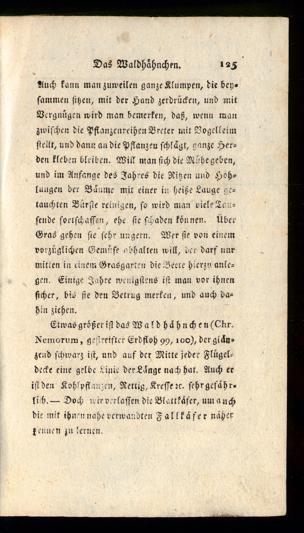 Das Waldhähnchen. 125
Auch kann man zuweilen ganze Klumpen, die bey-
sammen sitzen, mit der Hand zerdrücken, und mit
Vergnügen wird man bemerken, daß, wenn man
zwischen die Pflanzenreihen Breter mit Vogelleim
stellt, und dann an die Pflanzen schlägt, ganze Her-
den kleben bleiben. Will man sich die Mühe geben,
und im Anfange des Jahres die Ritzen und Höh-
lungen der Bäume mit einer in heiße Lauge ge-
tauchten Bürste reinigen, so wird man viele Tau-
sende fortschaffen, ehe sie schaden können. Über
Gras gehen sie sehr ungern. Wer sie von einem
vorzüglichen Gemüse abhalten will, der darf nur
mitten in einem Grasgarten die Beete hierzu anle-
gen. Einige Jahre wenigstens ist man vor ihnen
sicher, bis sie den Betrug merken, und auch da-
hin ziehen.
Etwas größer ist das Waldhähnchen (Chr.
Nemorum, gestreifter Erdfloh 99, 100), der glän-
zend schwarz ist, und auf der Mitte jeder Flügel-
decke eine gelbe Linie der Länge nach hat. Auch er
ist den Kohlpflanzen, Rettig, Kresse ꝛc. sehr gefähr-
lich. — Doch wir verlassen die Blattkäfer, um auch
die mit ihnen nahe verwandten Fallkäfer näher
kennen zu lernen.